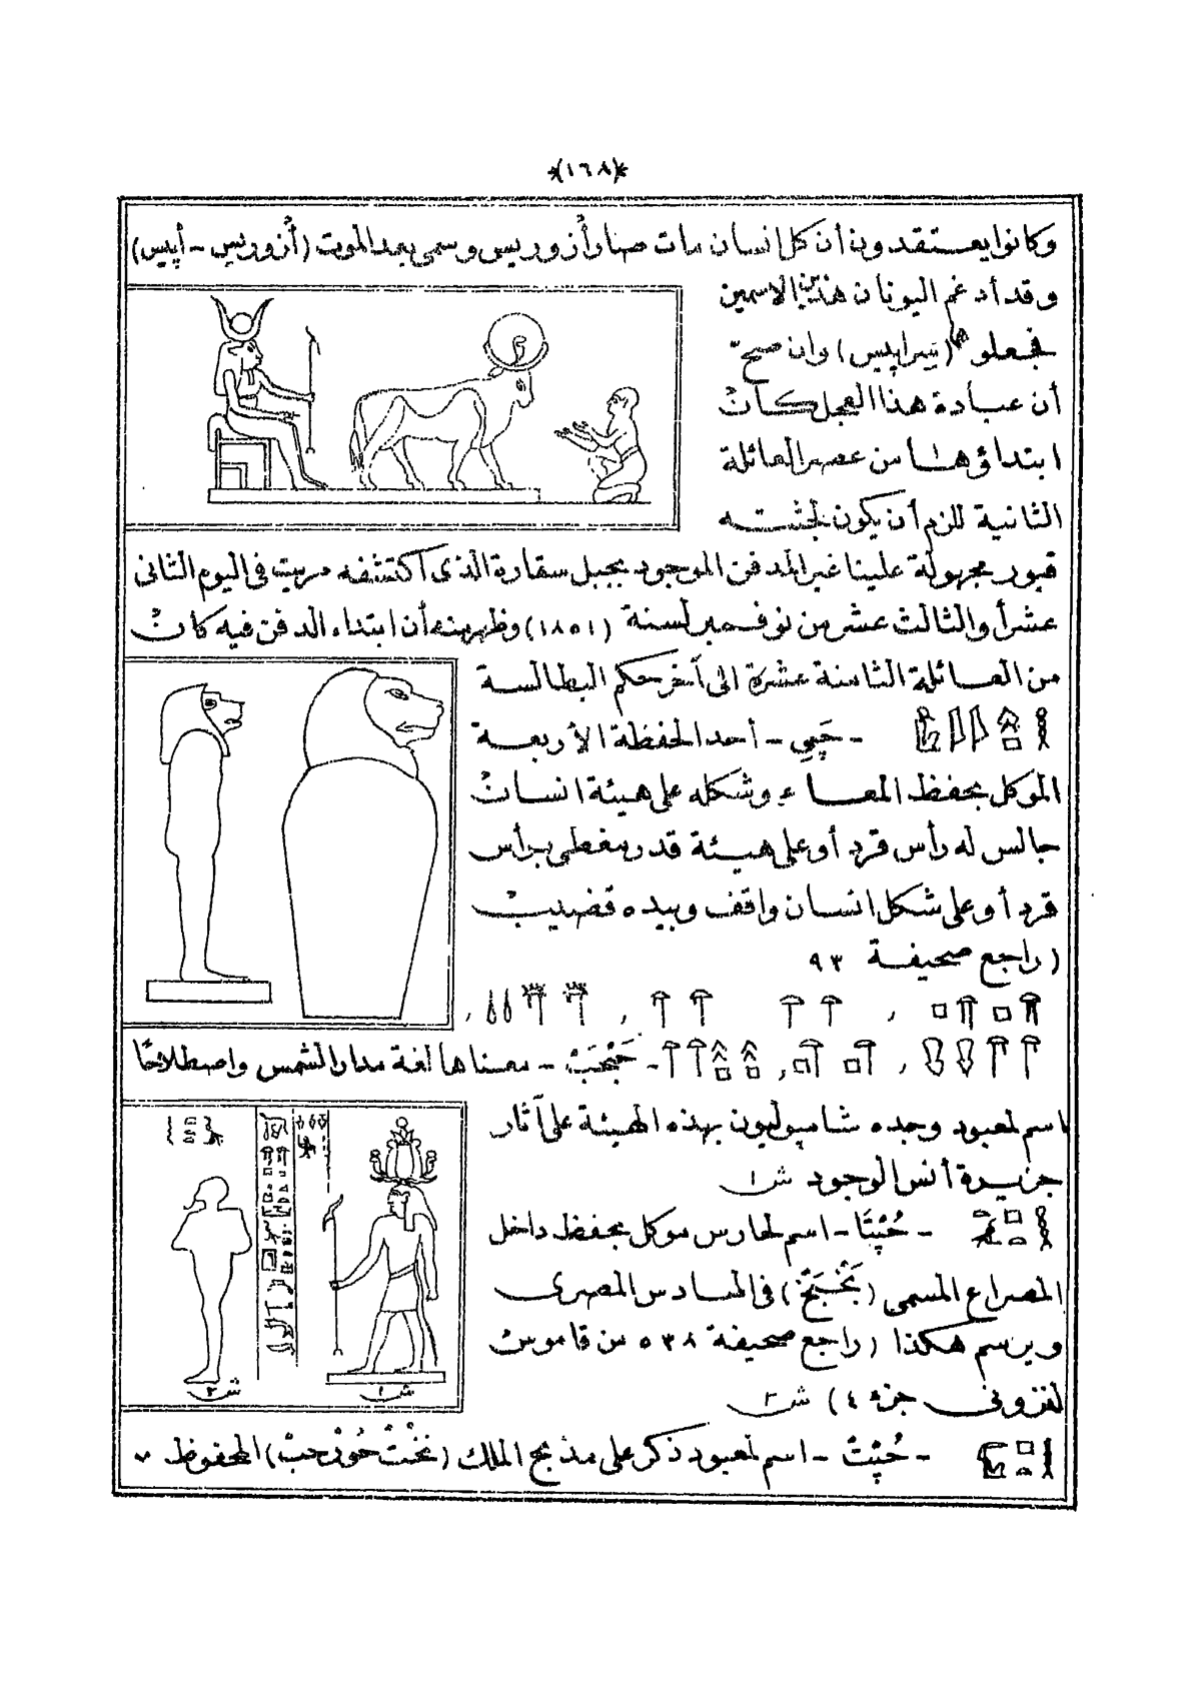 *(١٦٨)*
وكانوا يعتقدون أن كل انسان مات صار أزوريس وسمى بعد الموت (أزوريس - أپيس)
وقد أدغم اليونان هذين الاسمين
فجعلوها (سيراپيس) وان صح
أن عبادة هذا العجل كانت
ابتداؤها من عصر العائلة
الثانية للزم أن يكون لجثته
قبور مجهولة علينا غير المدفن الموجود بجبل سقارة الذى اكتشفه مريت فى اليوم الثانى
عشر أو الثالث عشر من نوفمبر لسنة (١٨٥١) وظهر منه أن ابتداء الدفن فيه كان
من العائلة الثامنة عشرة الى آخر حكم البطالسة
- حَپِي - أحد الحفظة الأربعة
الموكل بحفظ المعاء وشكله على هيئة انسان
جالس له رأس قرد أو على هيئة قدر مغطى برأس
قرد أو على شكل انسان واقف وبيده قضيب
(راجع صحيفة ٩٣
- حَبْحَبْ - معناها لغة مدار الشمس واصطلاحًا
اسم لمعبود وجده شامپوليون بهذه الهيئة على آثار
جزيرة أنس الوجود ش ١
- حُپِتَا - اسم لحارس موكل بحفظ داخل
المصراع المسمى () فى السادس المصرى
ويرسم هكذا (راجع صحيفة ٥٣٨ من قاموس
لنزونى جزء ٤) ش ٢
ش ١
ش ٢
- حُپِتْ - اسم لمعبود ذكر على مذبح الملك (نخْتْ حُورْحِبْ) المحفوظ